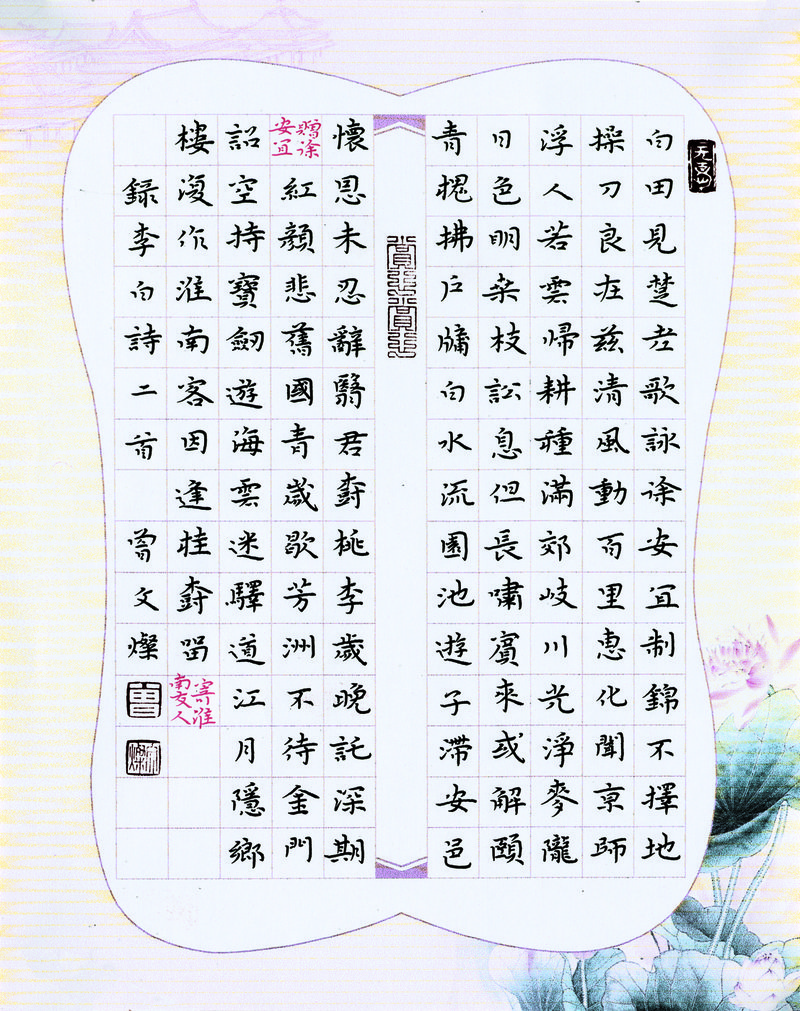 白田見楚老歌詠徐安宜制錦不擇地
操刀良在茲清風動百里惠化聞京師
浮人若雲歸耕種滿郊岐川光淨麥隴
日色明桑枝訟息但長嘯賓來或解頤
青槐拂戶牖白水流園池遊子滯安邑
懷恩未忍辭翳君樹桃李歲晚託深期
贈徐安宜
紅顏悲舊國青歲歇芳洲不待金門
詔空持寶劒遊海雲迷驛道江月隱鄉
樓復作淮南客因逢桂樹留
寄淮南友人
録李白詩二首 曾文燦
曾
文燦